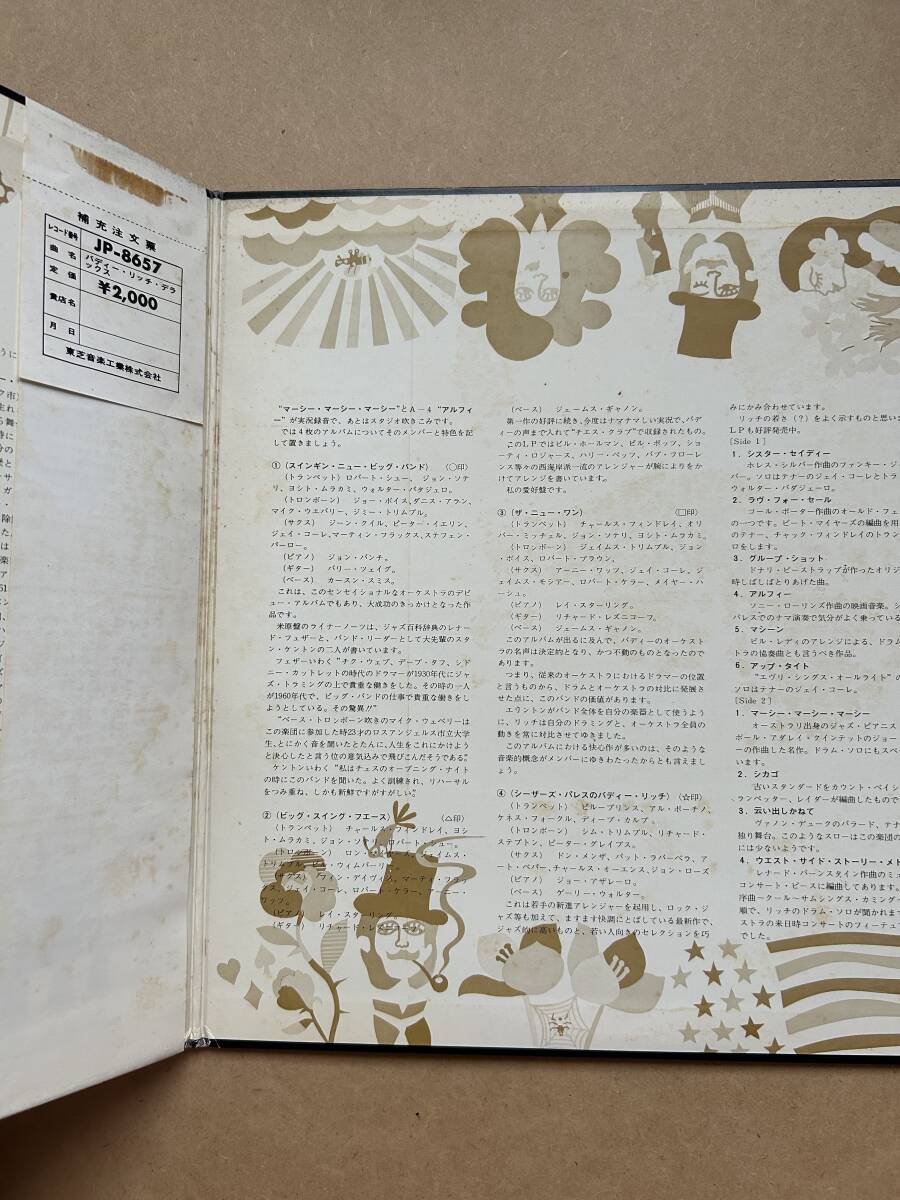 補充注文票
レコード番号
JP-8657
曲名
バディー・リッチ・デラ
ックス
定価
¥2,000
貴店名
月日
東芝音楽工業株式会社
"マーシー・マーシー・マーシー"とA-4 "アルフィ
ー"が実況録音で、あとはスタジオ吹きこみです。
では4枚のアルバムについてそのメンバーと特色を記
して置きましょう。
①(スインギン・ニュー・ビッグ・バンド) (○印)
(トランペット)ロバート・シュー、ジョン・ソテ
リ、ヨシト・ムラカミ、ウォルター・バタジェロ。
(トロンボーン)ジョー・ボイス、ダニス・アラン、
マイク・ウエバリー、ジミー・トリムブル。
(サクス) ジーン・クイル、ピーター・イエリン、
ジェイ・コーレ、マーティン・フラックス、ステフェン・
パーロー。
(ピアノ) ジョン・バンチ。
(ギター) バリー・ツェイグ。
(ベース) カースン・スミス。
これは、このセンセイショナルなオーケストラのデビ
ュー・アルバムでもあり、大成功のきっかけとなった作
品です。
米原盤のライナーノーツは、ジャズ百科辞典のレナー
ド・フェザーと、バンド・リーダーとして大先輩のスタ
ン・ケントンの二人が書いています。
フェザーいわく"チク・ウェブ、デーブ・タフ、シド
ニー・カットレットの時代のドラマーが1930年代にジャ
ズ・トラミングの上で貴重な働きをした。その時の一人
が1960年代で、ビッグ・バンドの仕事で貴重な働きをし
ようとしている。その驚異が"
"ベース・トロンボーン吹きのマイク・ウェベリーは
この楽団に参加した時23才のロスアンジェルス市立大学
生、とにかく音を聞いたとたんに、人生をこれにかけよう
と決心したと言う位の意気込みで飛びこんだそうである。"
ケントンいわく"私はチェスのオープニング・ナイト
の時にこのバンドを聞いた。よく訓練され、リハーサル
をつみ重ね、しかも新鮮ですがすがしい。"
②(ビッグ・スイング・フエース) (△印)
(トランペット) チャールス・フィンドレイ、ヨシ
ト・ムラカミ、ジョン・ソテリ、ロバート・シュー。
(トロンボーン) ロン・ ジェイムス・
トリムブル、ビル・ウィムバーリー。
(サクス) クィン・デイヴィス、マーティ・フラッ
クス、ジェイ・コーレ、ロバート・ケラー、アーニー・
ワッツ。
(ピアノ) レイ・スターリング。
(ギター) リチャード・レズニコフ。
(ベース) ジェームス・ギャノン。
第一作の好評に続き、今度はナマナマしい実況で、バデ
ィーの声まで入れて"チエス・クラブ"で収録されたもの。
このLPではビル・ホールマン、ビル・ポッツ、ショ
ーティ・ロジャース、ハリー・ベッツ、バブ・フローレ
ンス等々の西海岸派一流のアレンジャーが腕によりをか
けてアレンジを書いています。
私の愛好盤です。
③(ザ・ニュー・ワン) (□印)
(トランペット) チャールス・フィンドレイ、オリ
バー・ミッチェル、ジョン・ソテリ、ヨシト・ムラカミ。
(トロンボーン) ジェイムス・トリムブル、ジョン
・ボイス、ロバート・ブラウン。
(サクス) アーニー・ワッツ、ジェイ・コーレ、ジ
ェイムス・モシアー、ロバート・ケラー、メイヤー・ハ
ーシュ。
(ピアノ) レイ・スターリング。
(ギター) リチャード・レズニコーフ。
(ベース) ジェームス・ギャノン。
このアルバムが出るに及んで、バディーのオーケスト
ラの名声は決定的となり、かつ不動のものとなったので
あります。
つまり、従来のオーケストラにおけるドラマーの位置
と言うものから、ドラムとオーケストラの対比に発展さ
せた点に、このバンドの価値があります。
エリントンがバンド全体を自分の楽器として使うよう
に、リッチは自分のドラミングと、オーケストラ全員の
動きを常に対比させてゆきました。
このアルバムにおける快心作が多いのは、そのような
音楽的概念がメンバーにゆきわたったからとも言えまし
ょう。
④(シーザーズ・パレスのバディー・リッチ) (☆印)
(トランペット) ビル・プリンス、アル・ポーチノ、
ケネス・フォークル、ディーブ・カルプ。
(トロンボーン) ジム・トリムブル、リチャード・
ステプトン、ピーター・グレイブス。
(サクス) ドン・メンザ、パット・ラバーベラ、ア
ート・ペパー、チャールス・オーエンス、ジョン・ローズ
(ピアノ) ジョー・アザレーロ。
(ベース) ゲーリー・ウォルター。
これは若手の新進アレンジャーを起用し、ロック・ジ
ャズ等も加えて、ますます快調にとばしている最新作で、
ジャズ的に高いものと、若い人向きのセレクションを巧
みにかみ合わせています。
リッチの若さ(?)をよく示すものと思いま
LPも好評発売中。
[Side 1]
1. シスター・セイディー
ホレス・シルバー作曲のファンキー・ジャ
バー。ソロはテナーのジェイ・コーレとトラン
ウォルター・バタジェーロ。
2. ラヴ・フォー・セール
コール・ポーター作曲のオールド・フェ
の一つです。ピート・マイヤーズの編曲を用
のテナー、チャック・フィンドレイのトラン
ロをします。
3. グループ・ショット
ドナリ・ピーストラップが作ったオリジ
時しばしばとりあげた曲。
4. アルフィー
ソニー・ローリンズ作曲の映画音楽。シ
パレスでのナマ演奏で気分がよく乗っている
5. マシーン
ビル・レディのアレンジによる、ドラム
トラの協奏曲とも言うべき作品。
6. アップ・タイト
"エヴリ・シングス・オールライト"の
ソロはテナーのジェイ・コーレ。
[Side 2]
1. マーシー・マーシー・マーシー
オーストラリ出身のジャズ・ピアニス
ボール・アダレイ・クインテットのジョー
ーの作曲した名作。ドラム・ソロにもスペ
います。
2. シカゴ
古いスタンダードをカウント・ベイシ
ランペッター、レイダーが編曲したもので
3. 云い出しかねて
ヴァノン・デュークのバラード、テナ
独り舞台。このようなスローはこの楽団の
には少ないようです。
4. ウエスト・サイド・ストーリー・メド
レナード・バーンスタイン作曲のミュ
コンサート・ピースに編曲してあります。
序曲ークールーサムシングス・カミングー
順で、リッチのドラム・ソロが聞かれます
ストラの来日時コンサートのフィーチュア
でした。